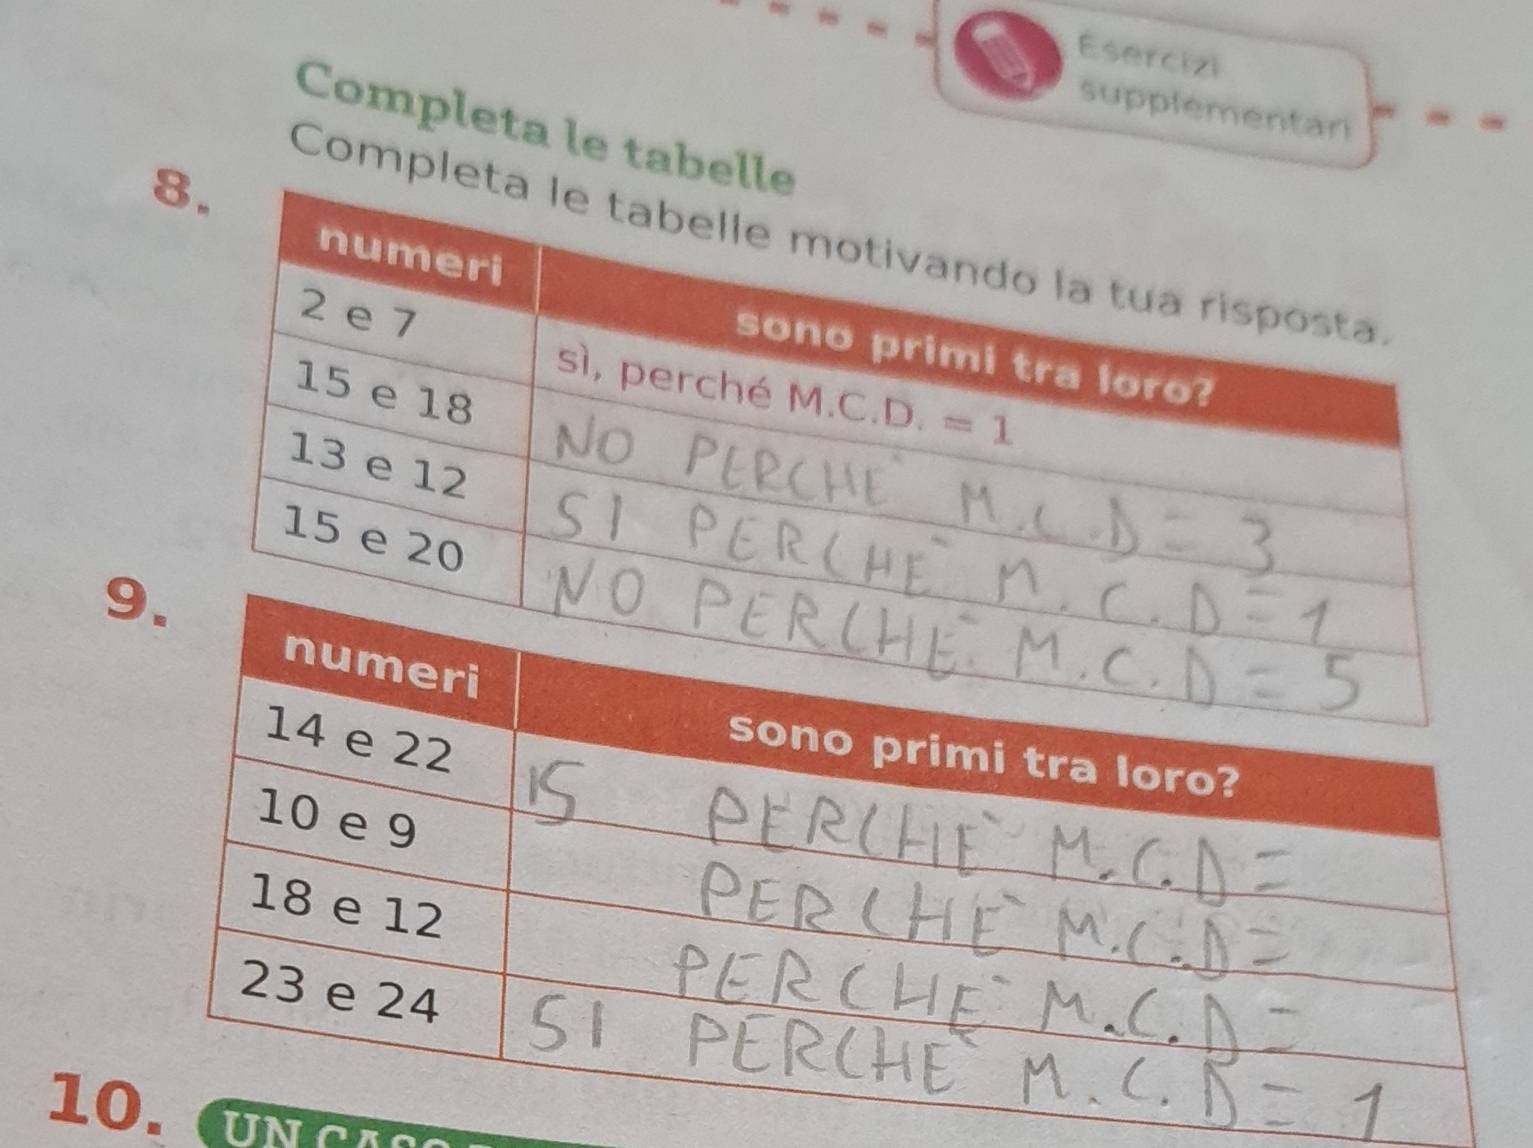 Esercizi
supplementari
Completa le tabelle
8. Completa le tabelle motivando la tua risposta.
numeri sono primi tra loro?
2 e 7 sì, perché M.C.D. = 1
15 e 18 NO PERCHE' M.C.D = 3
13 e 12 SI PERCHE' M.C.D = 1
15 e 20 NO PERCHE' M.C.D = 5
9.
numeri sono primi tra loro?
14 e 22 IS PERCHE' M.C.D =
10 e 9 PERCHE' M.C.D =
18 e 12 PERCHE' M.C.D =
23 e 24 SI PERCHE' M.C.D = 1
10. UN